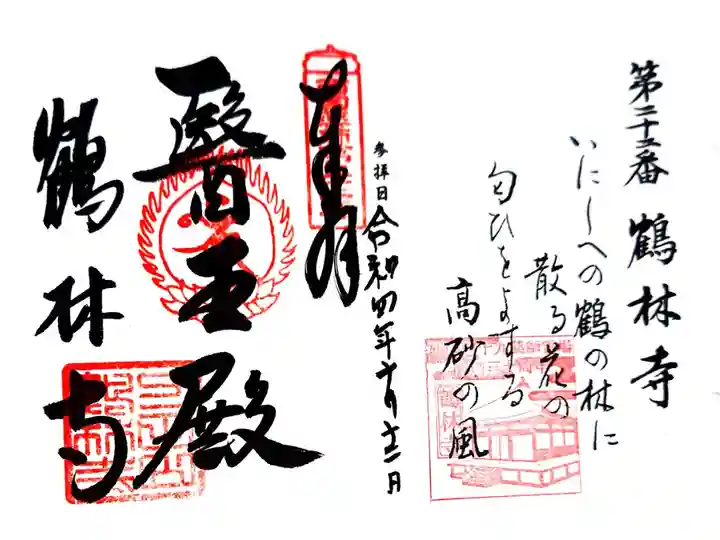 第二十二番 鶴林寺
いにしへの鶴の林に
散る花の
匂ひをよする
高砂の風
参拝日 令和四年六月十二日
奉拝
醫王殿
鶴林寺